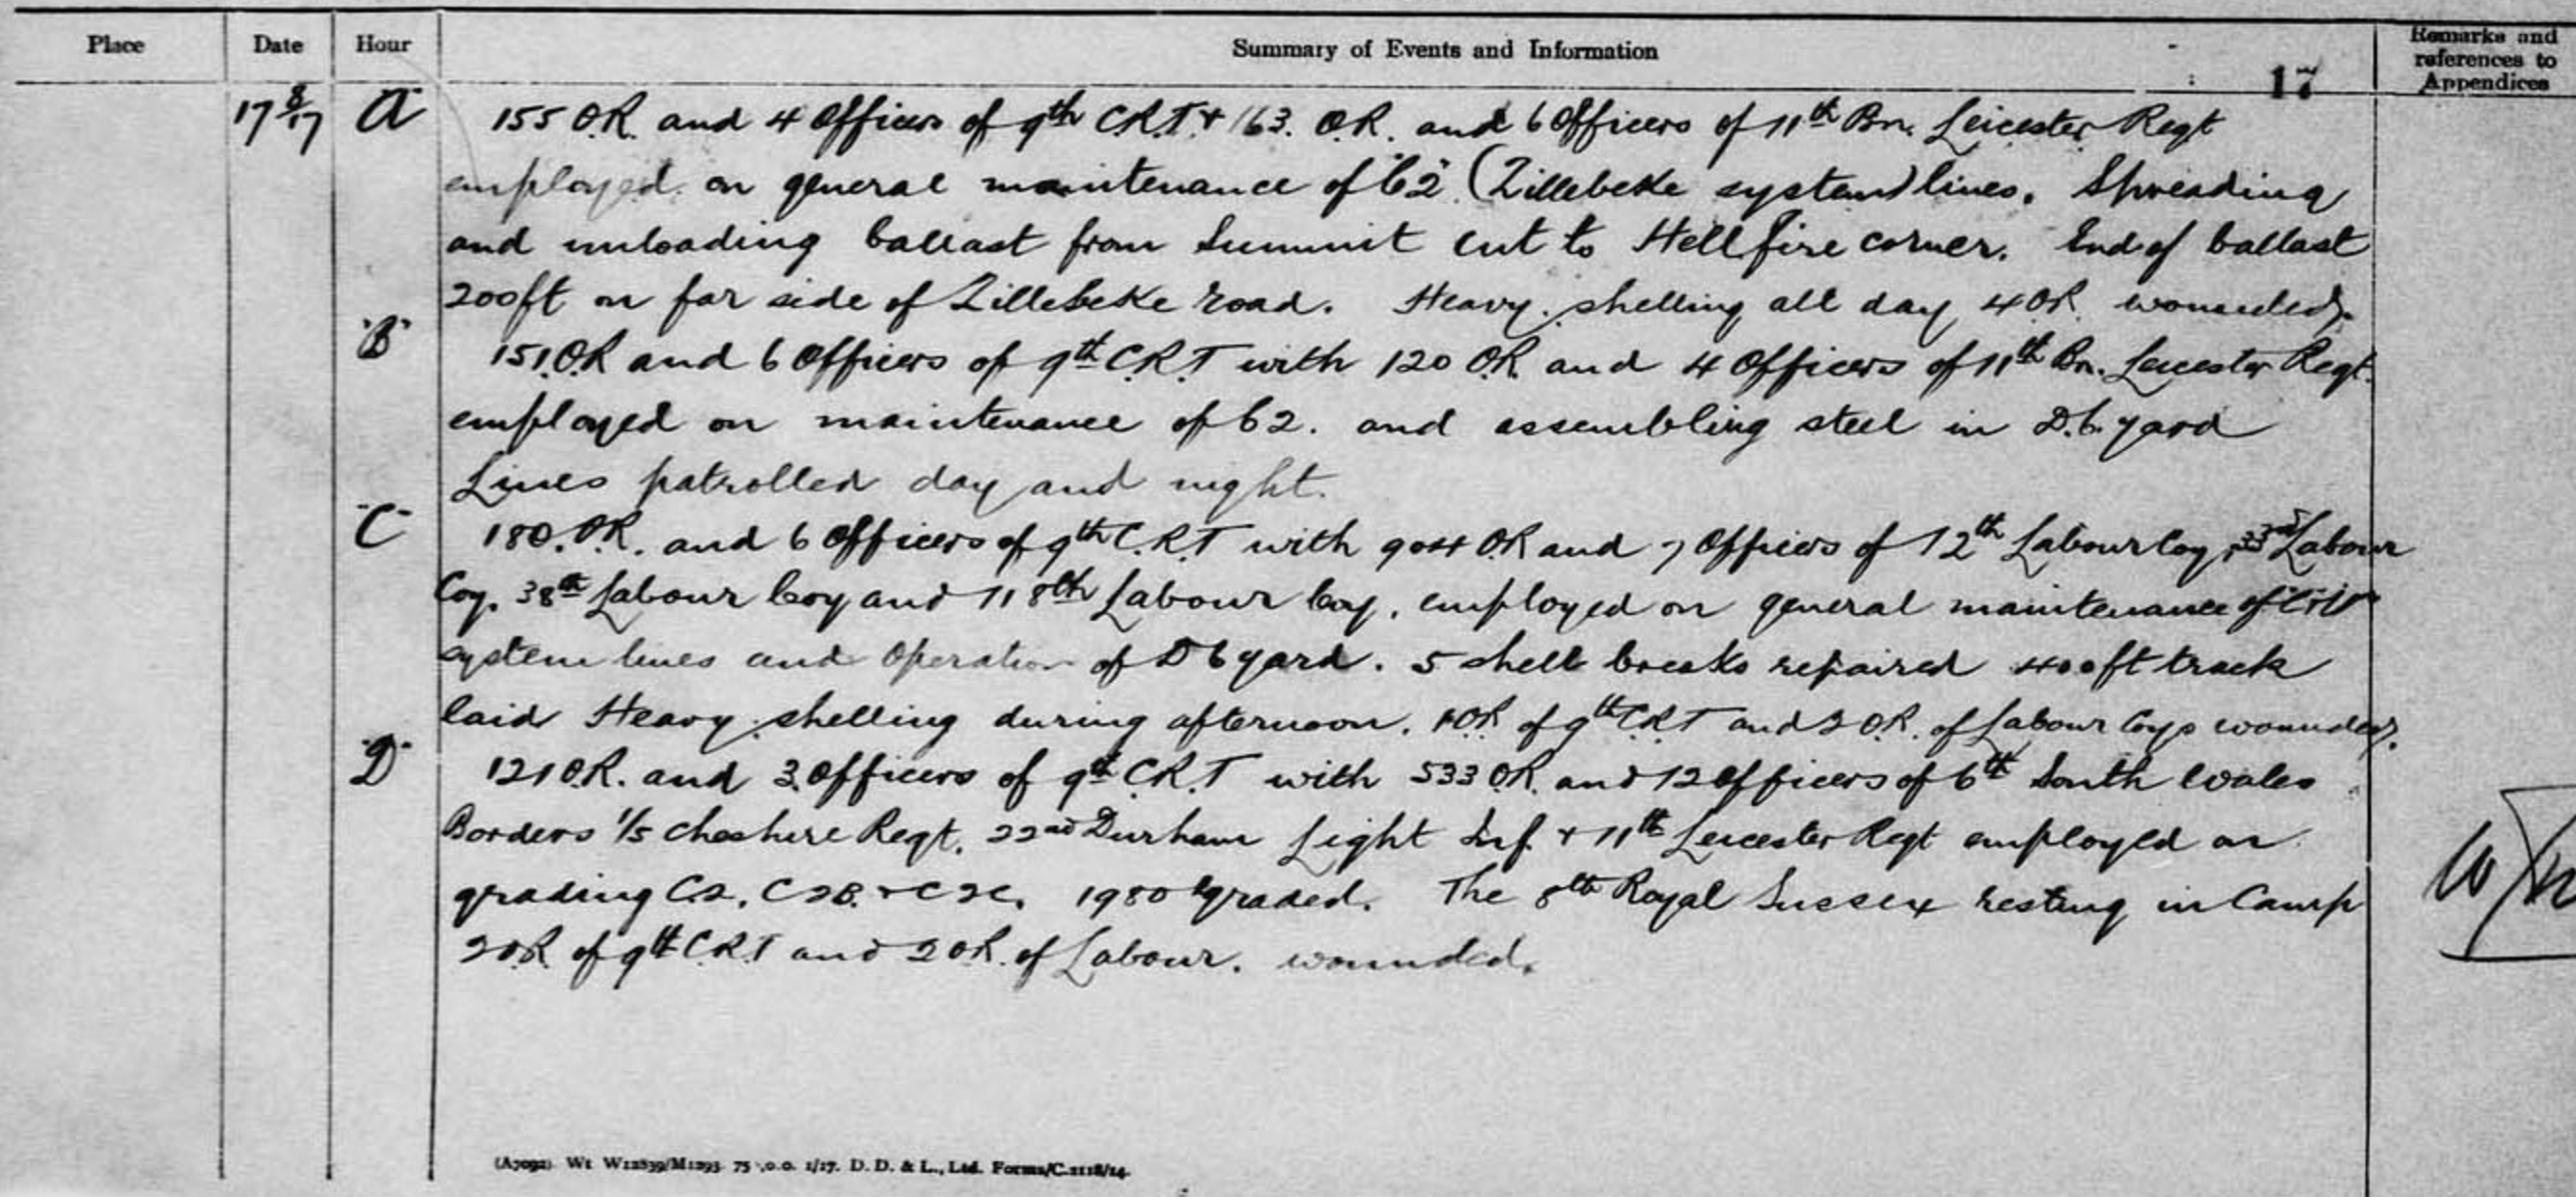 Place Date Hour Summary of Events and Information Remarks and references to Appendices
17
17 8/17 "A" 155 O.R. and 4 Officers of 9th C.R.T. + 163. O.R. and 6 Officers of 11th Bn. Leicester Regt
employed on general maintenance of "C2" (Zillebeke system) lines. Spreading
and unloading ballast from Summit cut to Hellfire corner. End of ballast
200ft on far side of Zillebeke road. Heavy shelling all day 4 O.R. wounded.
"B" 151 O.R and 6 Officers of 9th C.R.T with 120 O.R. and 4 Officers of 11th Bn. Leicester Regt.
employed on maintenance of C2. and assembling steel in D.6. yard
Lines patrolled day and night.
"C" 180. O.R. and 6 Officers of 9th C.R.T with 904 O.R and 7 Officers of 12th Labour Coy, 33rd Labour
Coy. 38th Labour Coy and 118th Labour Coy. employed on general maintenance of
system lines and Operation of D6 yard. 5 shell breaks repaired 400ft track
laid Heavy shelling during afternoon. 1 O.R of 9th C.R.T and 2 O.R. of Labour Coys wounded.
"D" 121 O.R. and 3 Officers of 9th C.R.T with 533 O.R. and 12 Officers of 6th South Wales
Borders 1/5 Cheshire Regt. 22nd Durham Light Inf. + 11th Leicester Regt employed on
grading C2, C2B. + C2C. 1980' graded. The 8th Royal Sussex resting in Camp
2 O.R. of 9th C.R.T and 2 O.R. of Labour. wounded.
(A7092) Wt W12839/M1293 75 ,0.0. 1/17. D. D. & L., Ltd. Forms/C.2118/14.